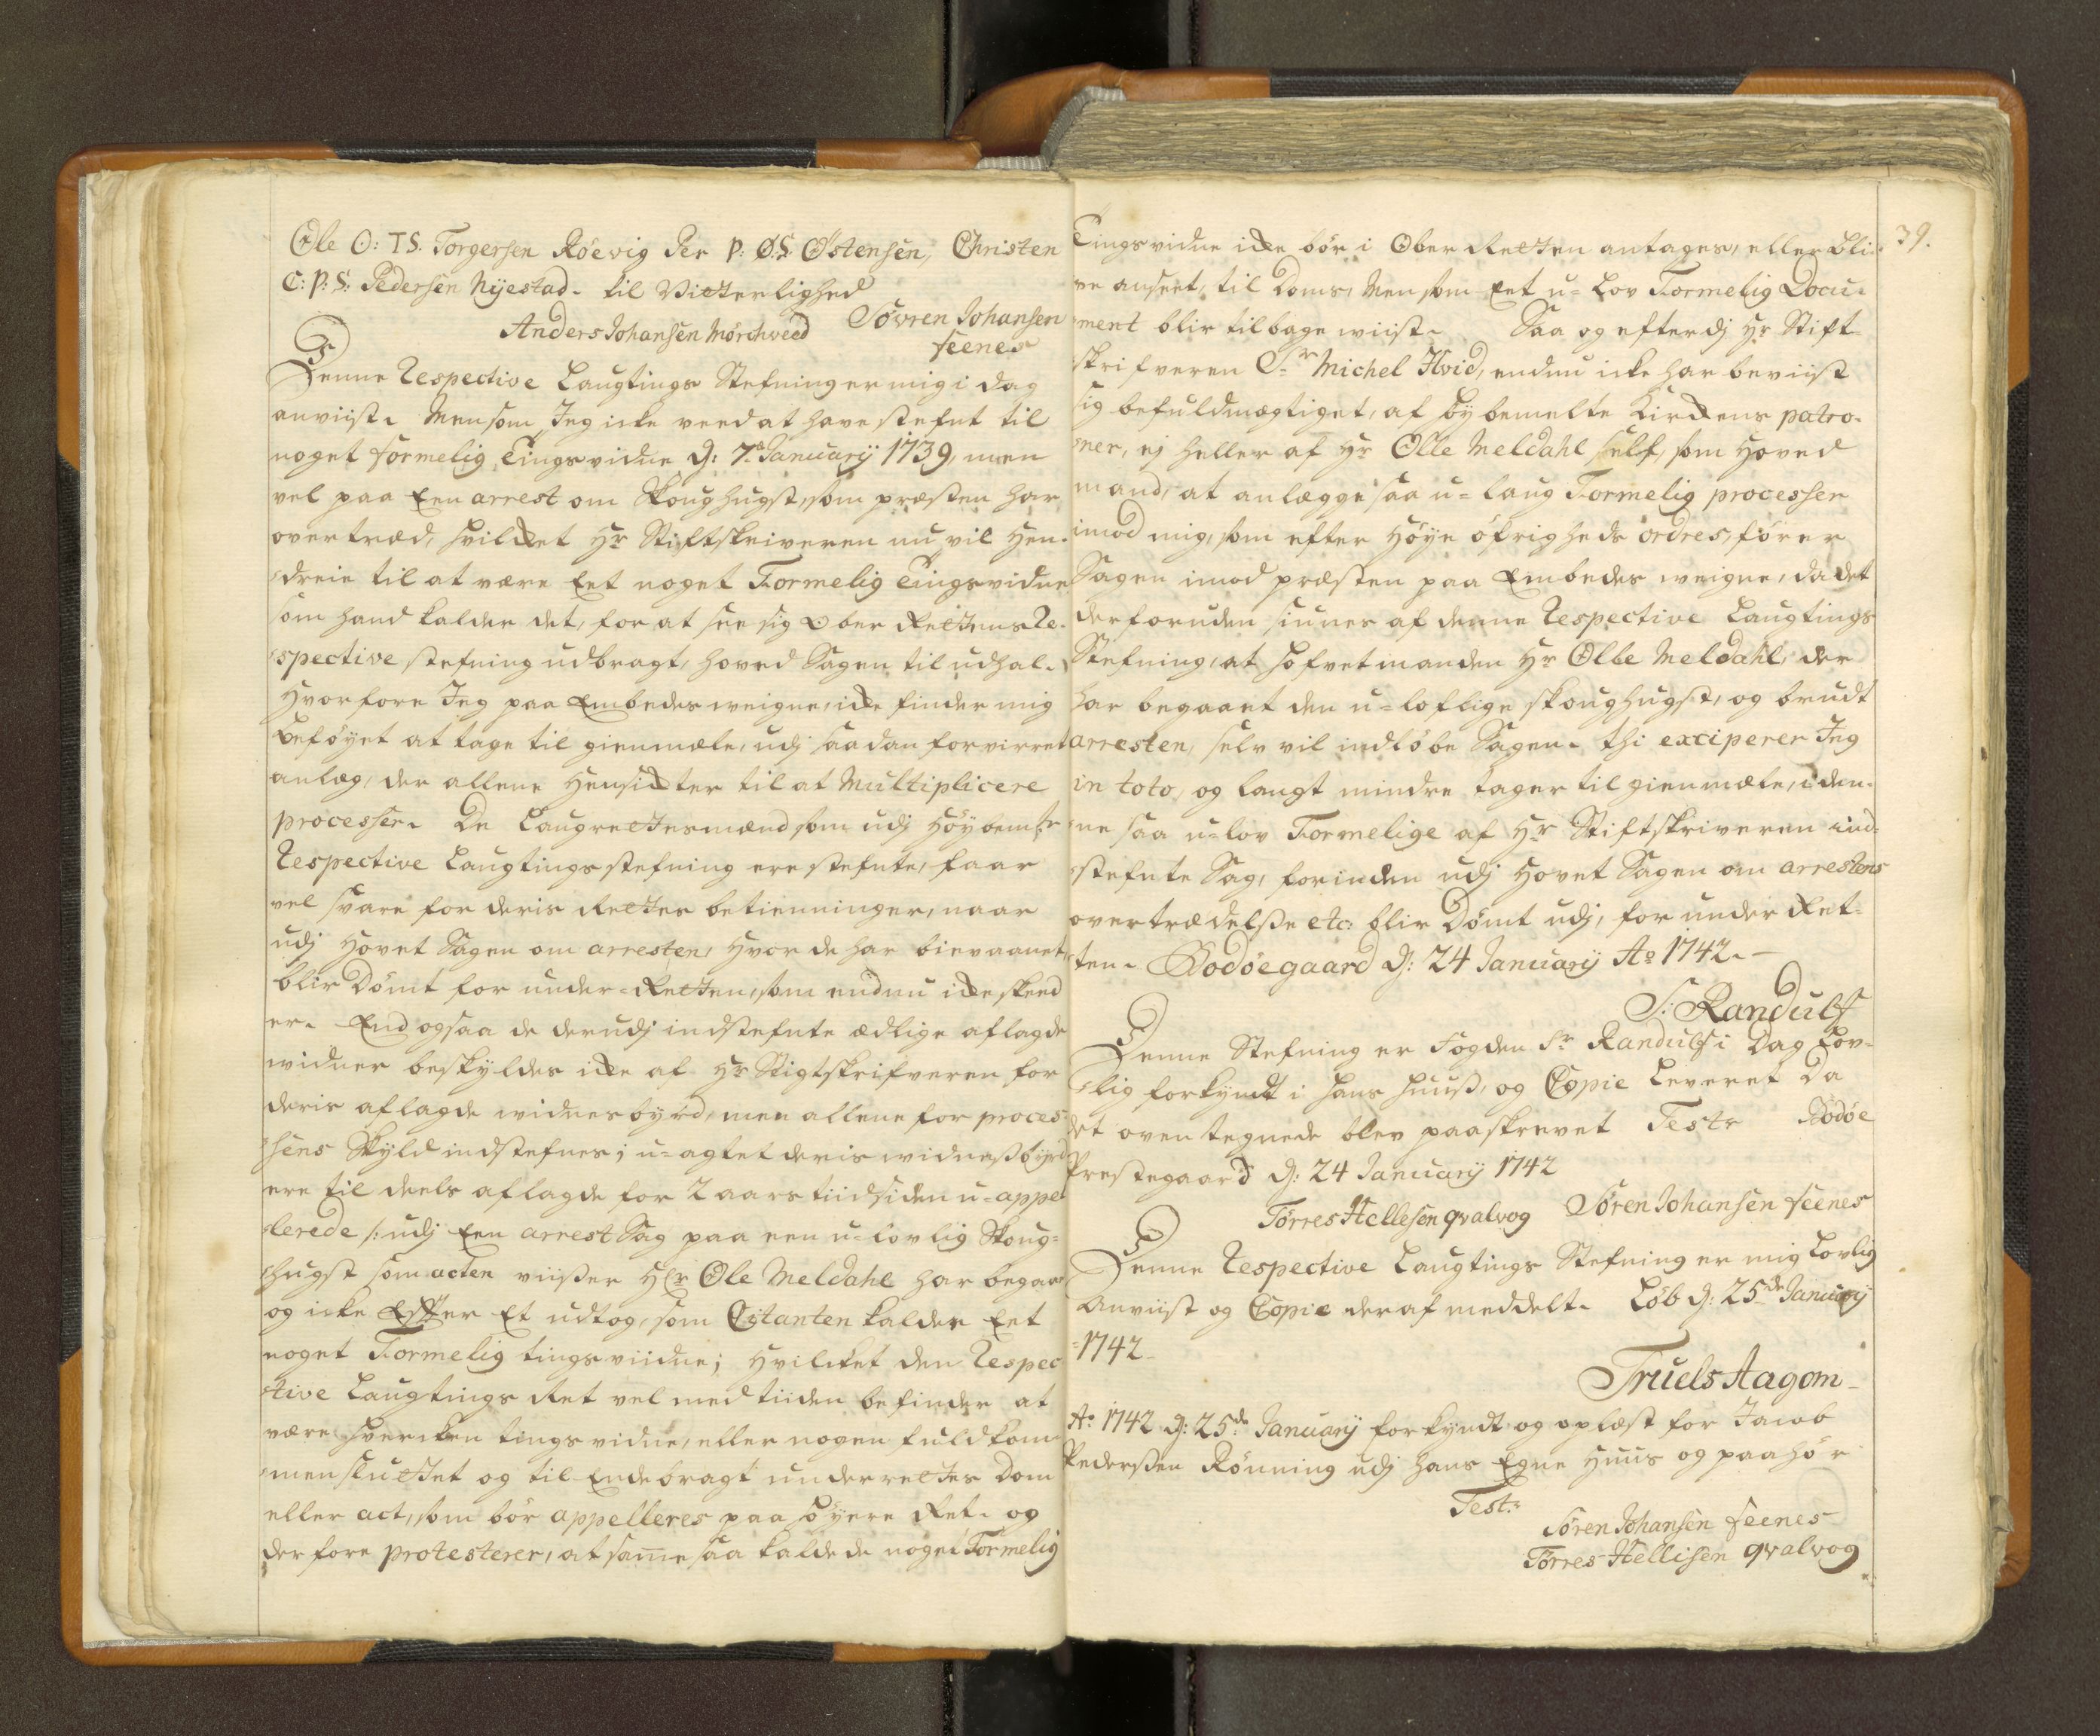 Ole O: T S. Torgersen Röevig Per P: Ø: S: Østensen, Christen
C: P: S: Pedersen Nÿestad. til Vitterlighed
Anders Johansen Mørchveed Søvren Johansen
feenes
Denne Respective Laugtings Stefning er mig i dag
anviist. Men som Jeg icke veed at have stefnt til
noget formelig Tingsvidne d: 7de Januarÿ 1739, men
vel paa Een arrest om Skoughugst, som præsten har
overtræd, hvilcket Hr Stiftskriveren nu vil Hen-
dreie til at være Eet noget Formelig Tingsvidne
som hand kalder det, for at see sig Ober Rettens Re-
spective stefning udbragt, hoved Sagen til udhal.
Hvorfore Jeg paa Embedes weigne, icke finder mig
beföyet at tage til gienmæle, udj saadan forvirret
anlæg, der allene Hensickter til at Multiplicere
processer. De Laugrettesmænd som udj Höybemte
Respective Laugtings stefning ere stefnte, faar
vel svare for deris Rettes betienninger, naar
udj Hovet Sagen om arresten, Hvor de har bievaanet,
blir Dömt for under-Retten, som endnu icke skeed
er. End ogsaa de derudj indstefnte ædlige aflagde
widner beskyldes icke af Hr Stigtskrifveren for
deris aflagde widnesbyrd, men allene for proces-
sens Skyld indstefnes; u-agtet deris widnesbyrd
ere til deels aflagde for 2 aars tiid siden u-appel
lerede /: udj Een arrest Sag paa een u-lovlig Skoug-
hugst som acten viiser Hr Ole Meldahl har begaaet
og icke Efter Et udtog, som Citanten kalder Eet
noget Formelig tingsviidne; Hvilcket den Respec
tive Laugtings Ret vel med tiiden befinder at
være hvercken tingsvidne, eller nogen fuldkom-
men sluttet og til Ende bragt underrettes Dom
eller act, som bör appelleres paa höyere Ret. og
derfore protesterer, at samme saa kaldede noget Formelig
39.
Tingsvidne icke bör i Ober Retten antages, eller bli-
ve anseet, til Doms, Men som Eet u-Lov Formelig Docu-
ment blir tilbage wiist. Saa og efterdj Hr Stift
skrifveren Sr Michel Hvid, endnu icke har beviist
sig befuldmægtiget, af höybemelte Kirckens patro-
ner, ej heller af Hr Olle Meldahl self, som Hoved
mand, at anlægge saa u-laug Formelig processer
imod mig, som efter Höye öfrigheds ordres, förer
Sagen imod præsten paa Embedes weigne, da det
derforuden siunes af denne Respective Laugtings
Stefning, at hofvetmanden Hr Olle Meldahl, der
har begaaet den u-loflige skoughugst, og brudt
arresten, selv vil indlöbe Sagen. thi exciperer Jeg
in toto, og langt mindre tager til gienmæle, i den-
ne saa u-lov Formelige af Hr Stiftskriveren ind-
stefnte Sag, forinden udj Hovet Sagen om arrestens
overtrædelse etc: blir Dömt udj, for under Ret-
ten. Bodöegaard d: 24 Januarÿ Ao 1742.
S: Randulf
Denne Stefning er Fogden Sr Randulf i Dag Lov-
lig forkyndt i hans Huus, og Copie Leveret Da
det oven tegnede blev paaskrevet Test: Bodöe
Prestegaard d: 24 Januarÿ 1742
Törres Hellesen qvalvog Sören Johansen feenes
Denne Respective Laugtings Stefning er mig Lovlig
Anviist og Copie deraf meddelt. Löb d: 25de Januarÿ
1742
Truels Aagom
Ao 1742 d: 25de Januarÿ forkyndt og oplæst for Jacob
Pedersen Rönning udj hans Egne Huus og paahör
Test:
Sören Johansen feenes
Törres Hellisen qvalvog